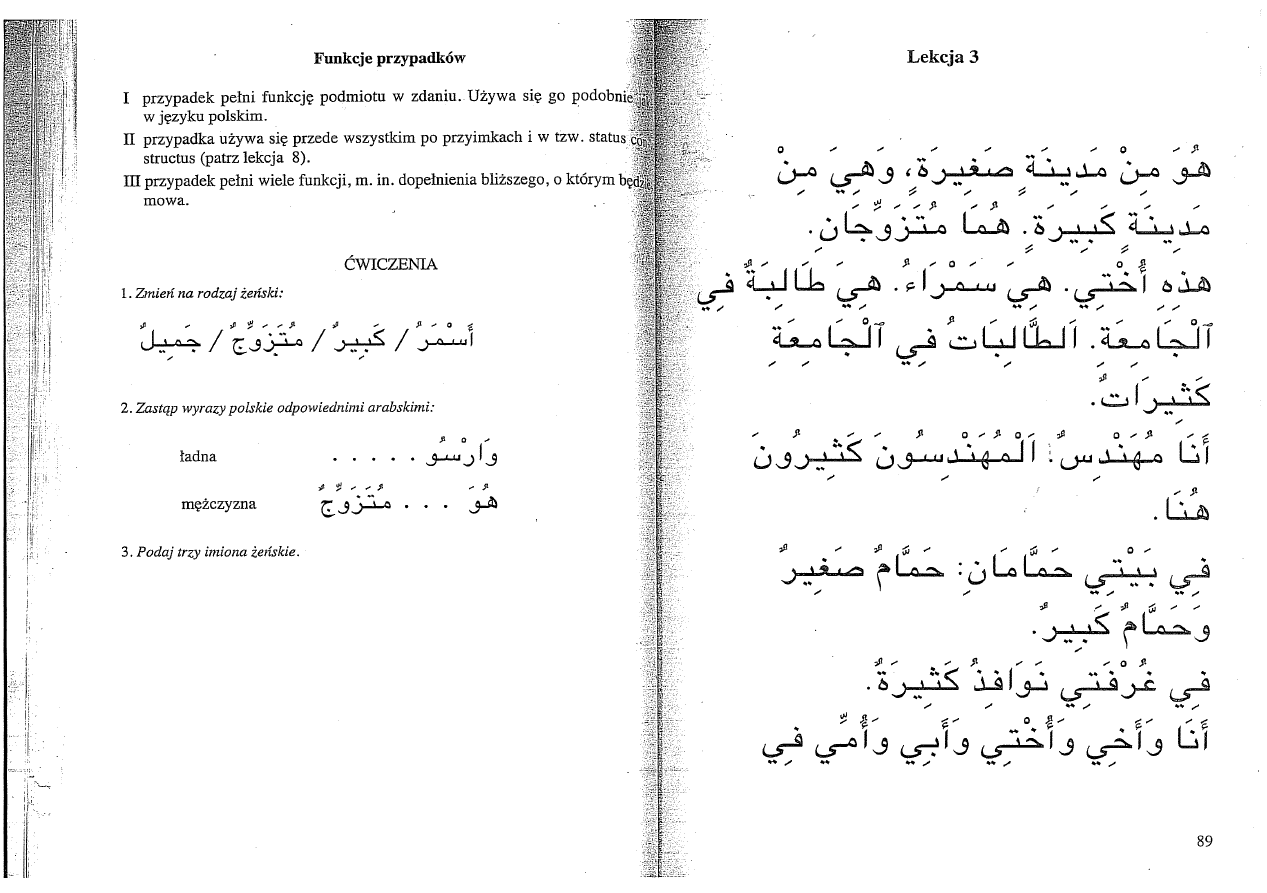 Funkcje przypadków
I przypadek pełni funkcję podmiotu w zdaniu. Używa się go podobnie
w języku polskim.
II przypadka używa się przede wszystkim po przyimkach i w tzw. status
structus (patrz lekcja 8).
III przypadek pełni wiele funkcji, m. in. dopełnienia bliższego, o którym
mowa.
ĆWICZENIA
1. Zmień na rodzaj żeński:
أَسْمَرُ / كَبِيرٌ / مُتَزَوِّجٌ / جَمِيلٌ
2. Zastąp wyrazy polskie odpowiednimi arabskimi:
ładna . . . . . وَارْسُو
mężczyzna هُوَ . . . مُتَزَوِّجٌ
3. Podaj trzy imiona żeńskie.
Lekcja 3
هُوَ مِنْ مَدِينَةٍ صَغِيرَةٍ، وَهِيَ مِنْ
مَدِينَةٍ كَبِيرَةٍ. هُمَا مُتَزَوِّجَانِ.
هٰذِهِ أُخْتِي. هِيَ سَمْرَاءُ. هِيَ طَالِبَةٌ فِي
ٱلْجَامِعَةِ. اَلطَّالِبَاتُ فِي ٱلْجَامِعَةِ
كَثِيرَاتٌ.
أَنَا مُهَنْدِسٌ: اَلْمُهَنْدِسُونَ كَثِيرُونَ
هُنَا.
فِي بَيْتِي حَمَّامَانِ: حَمَّامٌ صَغِيرٌ
وَحَمَّامٌ كَبِيرٌ.
فِي غُرْفَتِي نَوَافِذُ كَثِيرَةٌ.
أَنَا وَأَخِي وَأُخْتِي وَأَبِي وَأُمِّي فِي
89